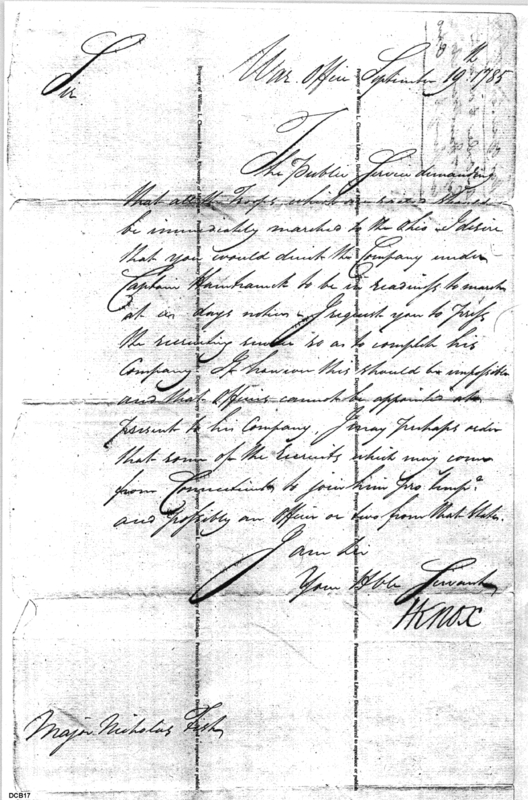 War Office September 19th 1785
Sir
The Public Service demanding
that all the Troops, which are raised should
be immediately marched to the Ohio. I desire
that you would direct the Company under
Captain Hamtramck to be in readiness to march
at a days notice. I request you to press
the recruiting service so as to complete his
Company. If however this should be impossible
and that Officers cannot be appointed at
present to his Company, I may perhaps order
that some of the Recruits which may come
from Connecticut to join him pro temp.e
and possibly an Officer or two from that State.
I am Sir
Your Hble Servant
HKnox
Major Nicholas Fish
Property of William L. Clements Library, University of Michigan. Permission from Library Director required to reproduce or publish
DCB17